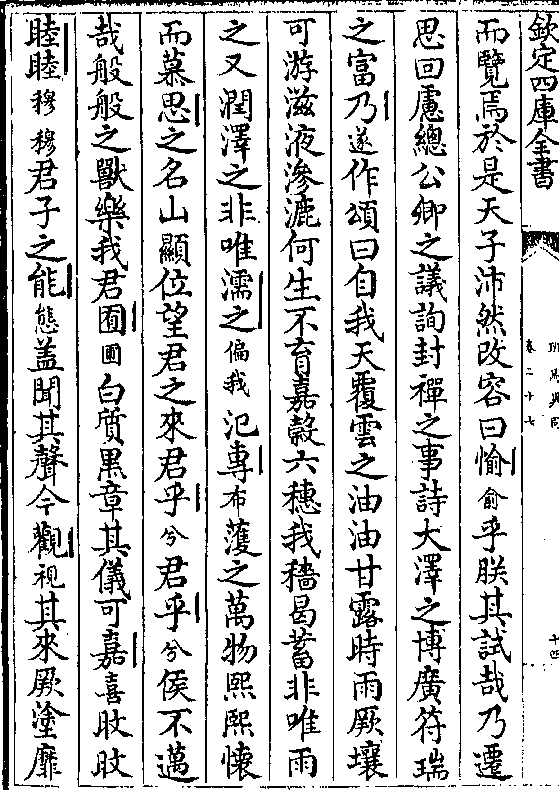 欽定四庫全書
班馬異同
卷二十七
十四
而覽焉於是天子沛然改容曰愉俞乎朕其試哉乃遷
思回慮總公卿之議詢封禪之事詩大澤之博廣符瑞
之富乃遂作頌曰自我天覆雲之油油甘露時雨厥壤
可游滋液滲漉何生不育嘉穀六穗我穡曷蓄非唯雨
之又潤澤之非唯濡之偏我氾專布濩之萬物熙熙懷
而慕思之名山顯位望君之來君乎兮君乎兮侯不邁
哉般般之獸樂我君囿圃白質黒章其儀可嘉喜旼旼
睦睦穆穆君子之能態盖聞其聲今觀視其來厥塗靡